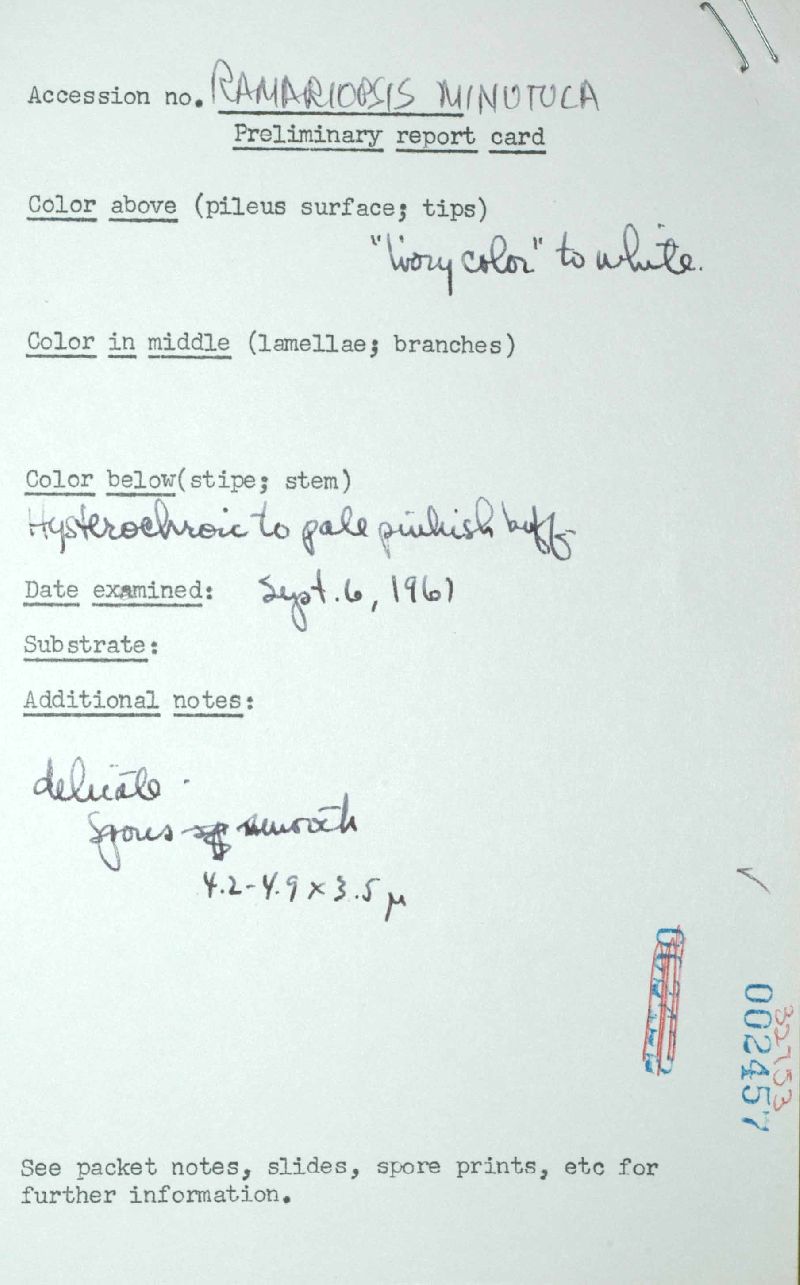 Accession no. RAMARIOPSIS MINUTULA
Preliminary report card
Color above (pileus surface; tips)
"Ivory color" to white.
Color in middle (lamellae; branches)
Color below(stipe; stem)
Hysterochroic to pale pinkish buff
Date examined: Sept. 6, 1961
Substrate:
Additional notes:
delicate.
Spores smooth
4.2-4.9 x 3.5 µ
32753
002457
See packet notes, slides, spore prints, etc for
further information.